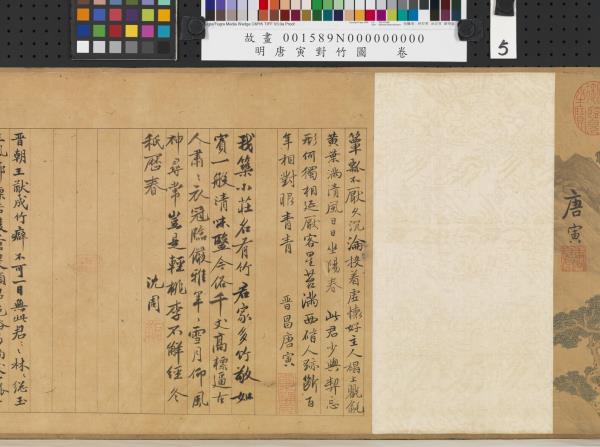 故畫 001589N000000000
明唐寅對竹圖 卷
5
唐寅
簞瓢不厭久沉淪投着虛懷好主人榻上氍毹
黃葉滿清風日日坐陽春 此君少與契忘
形何獨相延厭客星苔滿西階人跡斷百
年相對眼青青 晉昌唐寅
我築小莊名有竹君家多竹敬如
賓一般清味醫今俗千丈高標逼古
人肅〻衣冠臨儼雅 〻雪月仰風
神尋常豈是輕桃李不解經冬
秖歷春
沈周
晉朝王猷成竹癖不可一日無此君〻林〻總玉